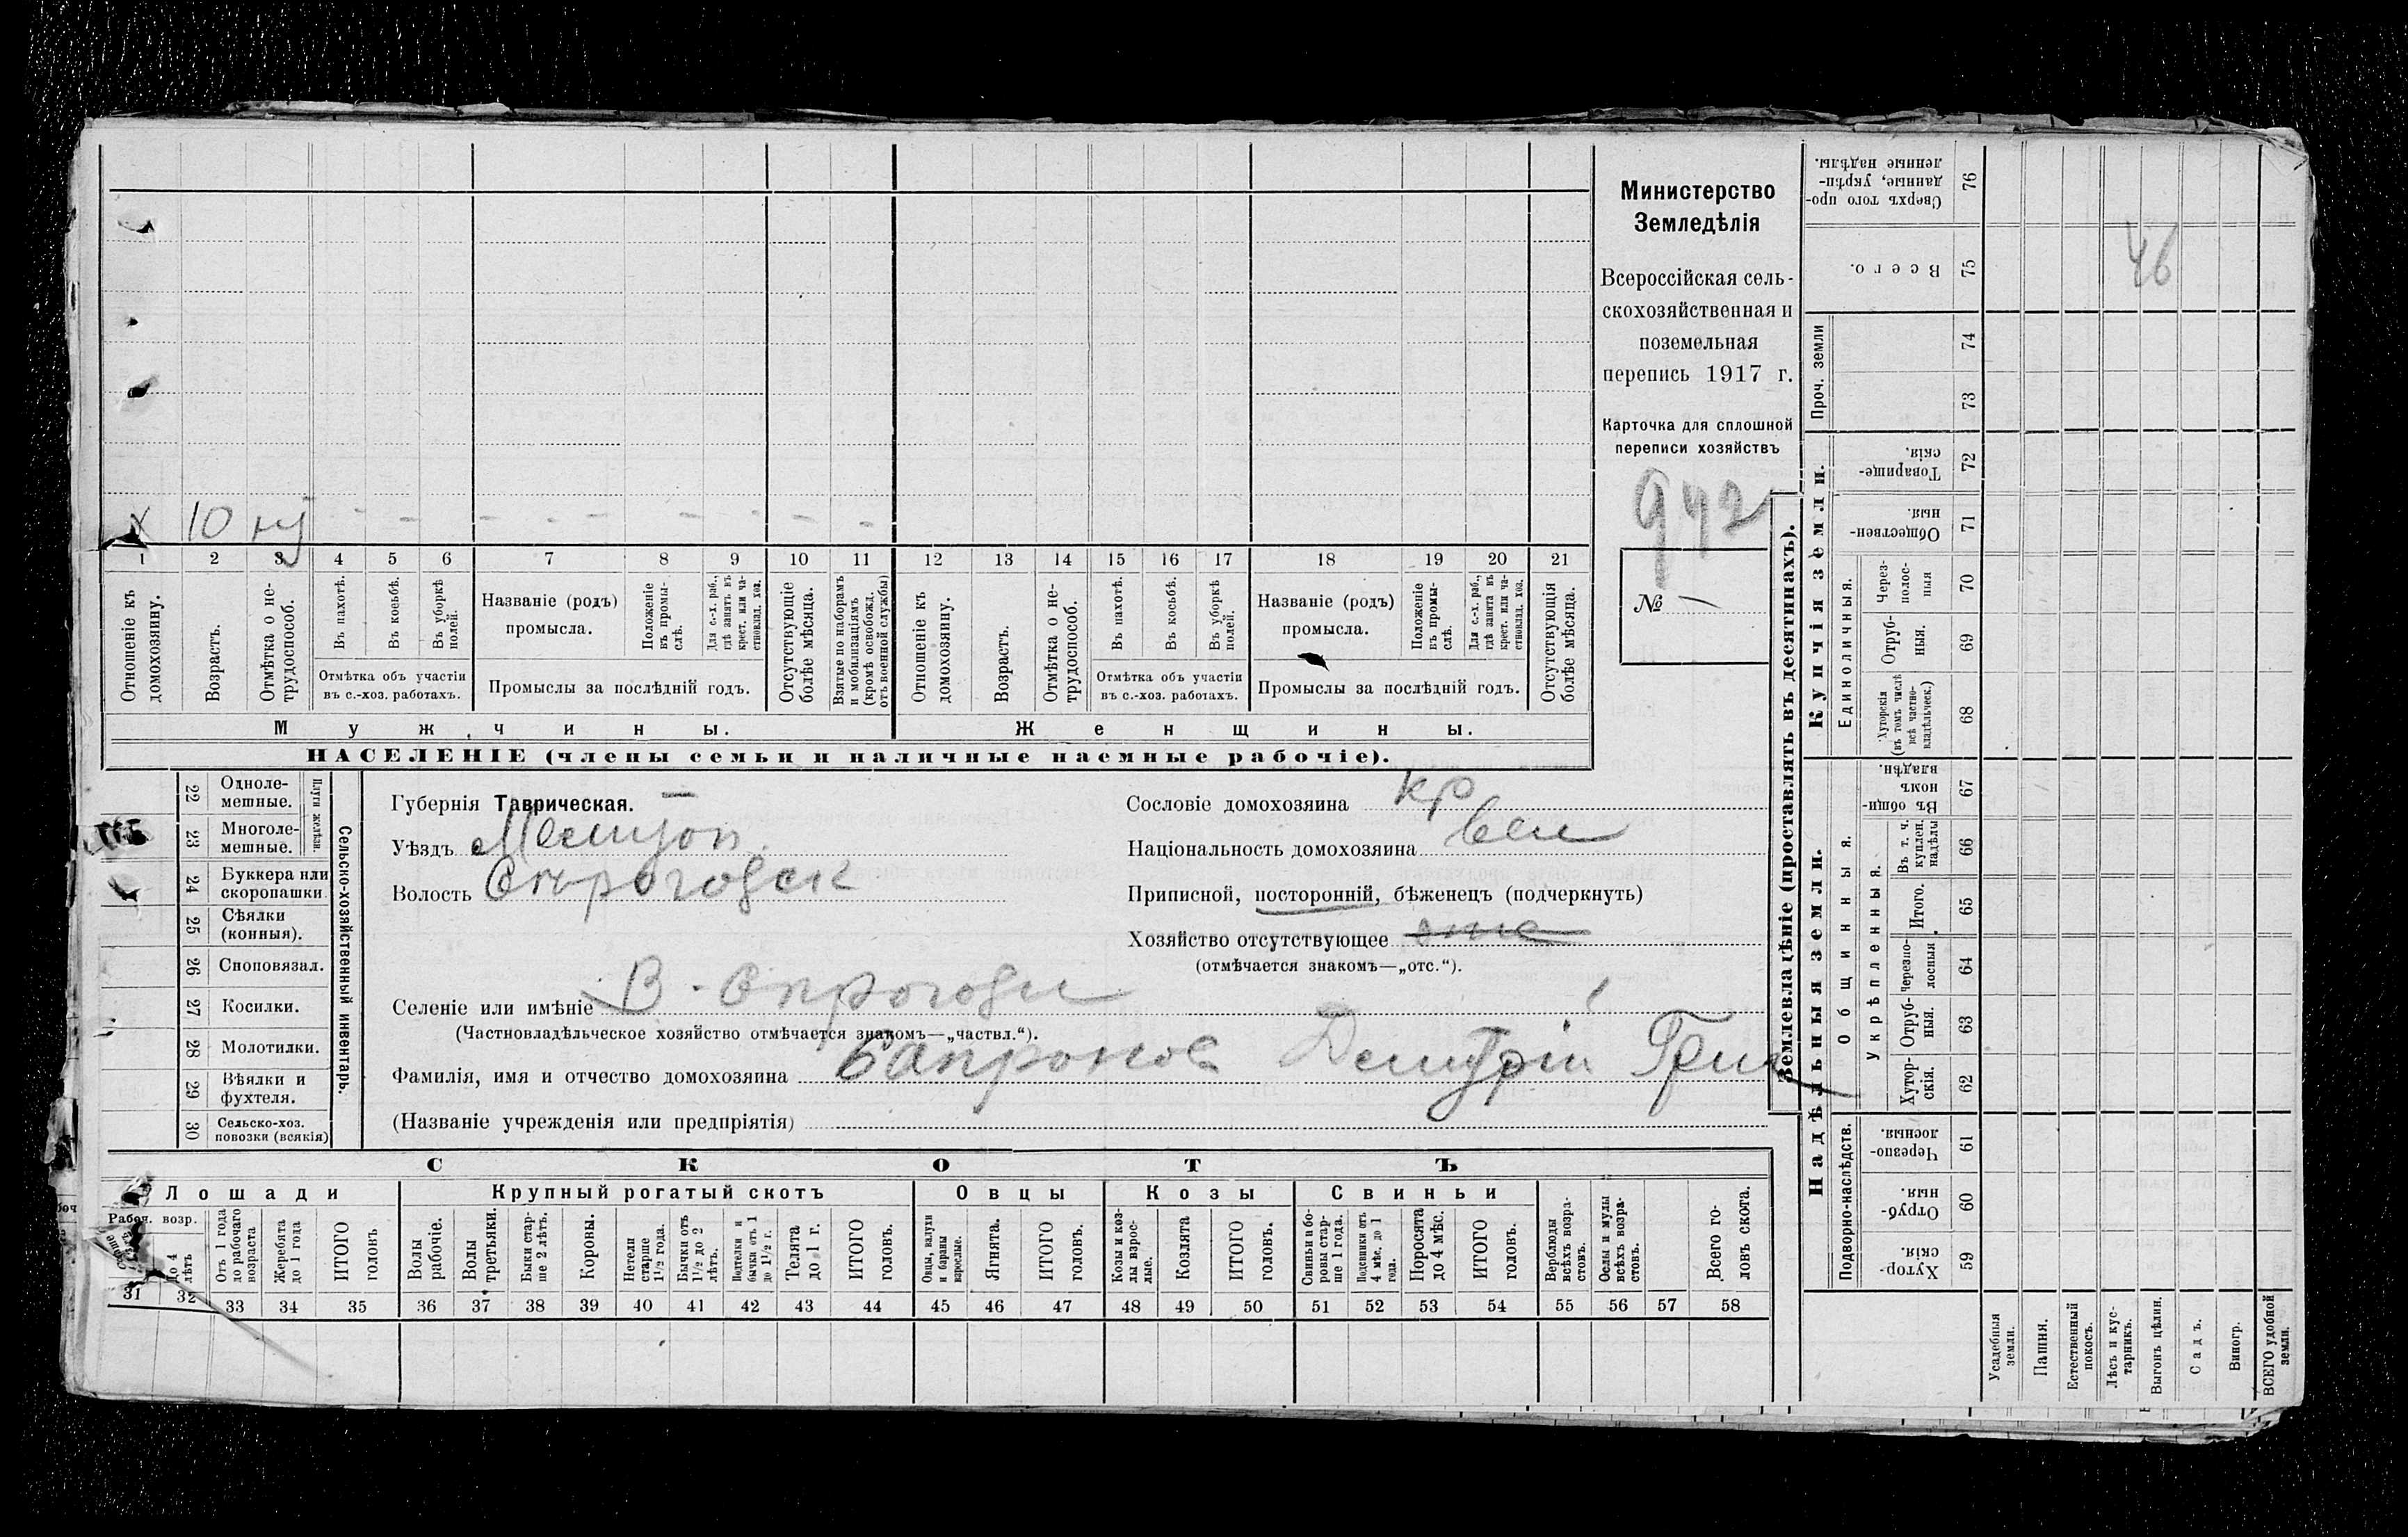 Министерство
Земледѣлія
Всероссійская сель-
скохозяйственная и
поземельная
перепись 1917 г.
Карточка для сплошной
переписи хозяйствъ
942
№ —
х 10 - - - - - - - -
1 2 3 4 5 6 7 8 9 10 11 12 13 14 15 16 17 18 19 20 21
Отношеніе къ домохозяину.
Возрастъ.
Отмѣтка о не-трудоспособ.
Въ пахотѣ.
Въ косьбѣ.
Въ уборкѣ полей.
Отмѣтка объ участіи
въ с.-хоз. работахъ.
Названіе (родъ)
промысла.
Положеніе въ промы-слѣ.
Для с.-х. раб., гдѣ занятъ въ крест. или ча-стновлад. хоз.
Промыслы за послѣдній годъ.
Отсутствующіе болѣе мѣсяца.
Взятые по наборамъ и мобилизаціямъ (кромѣ освобожд. отъ военной службы)
Отношеніе къ домохозяину.
Возрастъ.
Отмѣтка о не-трудоспособ.
Въ пахотѣ.
Въ косьбѣ.
Въ уборкѣ полей.
Отмѣтка объ участіи
въ с.-хоз. работахъ.
Названіе (родъ)
промысла.
Положеніе въ промы-слѣ.
Для с.-х. раб., гдѣ занята въ крест. или ча-стновлад. хоз.
Промыслы за послѣдній годъ.
Отсутствующія болѣе мѣсяца.
Мужчины.
Женщины.
НАСЕЛЕНІЕ (члены семьи и наличные наемные рабочіе).
22 Одноле-мешные.
23 Многоле-мешные.
Плуги желѣзн.
24 Буккера или скоропашки.
25 Сѣялки (конныя).
26 Сноповязал.
27 Косилки.
28 Молотилки.
29 Вѣялки и фухтеля.
30 Сельско-хоз. повозки (всякія)
Сельско-хозяйственный инвентарь.
Губернія Таврическая.
Уѣздъ Мелитоп.
Волость
Сословіе домохозяина кр
Національность домохозяина вел
Приписной, посторонній, бѣженецъ (подчеркнуть)
Хозяйство отсутствующее
(отмѣчается знакомъ—„отс.“).
Селеніе или имѣніе
(Частновладѣльческое хозяйство отмѣчается знакомъ—„частвл.“).
Фамилія, имя и отчество домохозяина Сапронов Дмитрій Григ
(Названіе учрежденія или предпріятія)
СКОТЪ
Лошади
Крупный рогатый скотъ
Овцы
Козы
Свиньи
Рабоч. возр.
до 4 лѣтъ
Отъ 1 года до рабочаго возраста
Жеребята до 1 года
ИТОГО головъ
Волы рабочіе.
Волы третьяки.
Быки стар-ше 2 лѣтъ.
Коровы.
Нетели старше 1½ года.
Бычки отъ 1½ до 2 лѣтъ.
Подтелки и бычки отъ 1 до 1½ г.
Телята до 1 г.
ИТОГО головъ.
Овцы, валухи и бараны взрослые.
Ягнята.
ИТОГО головъ.
Козы и коз-лы взрос-лые.
Козлята
ИТОГО головъ.
Свиньи и бо-ровы стар-ше 1 года.
Подсвинки отъ 4 мѣс. до 1 года.
Поросята до 4 мѣс.
ИТОГО головъ.
Верблюды всѣхъ возра-стовъ.
Ослы и мулы всѣхъ возра-стовъ.
Всего го-ловъ скота.
31 32 33 34 35 36 37 38 39 40 41 42 43 44 45 46 47 48 49 50 51 52 53 54 55 56 57 58
Землевладѣніе (проставлять въ десятинахъ).
Надѣльныя земли.
Купчія земли.
Проч. земли
Подворно-наслѣдств.
Общинныя.
Укрѣпленныя.
Единоличныя.
Сверхъ того про-данные, укрѣп-ленные надѣлы. 76
Всего. 75
46
74
73
Товарище-скія. 72
Обществен-ныя. 71
Через-полос-ныя 70
Отруб-ныя. 69
Хуторскія (въ томъ числѣ всѣ частно-владѣльческ.) 68
Въ общи-номъ владѣн. 67
Въ т. ч. куплен. надѣлы 66
Итого. 65
Черезпо-лосныя 64
Отруб-ныя. 63
Хутор-скія. 62
Черезпо-лосныя. 61
Отруб-ныя. 60
Хутор-скія. 59
Усадебныя земли.
Пашня.
Естественный покосъ.
Лѣсъ и кус-тарникъ.
Выгонъ цѣлин.
Садъ.
Виногр.
ВСЕГО удобной земли.